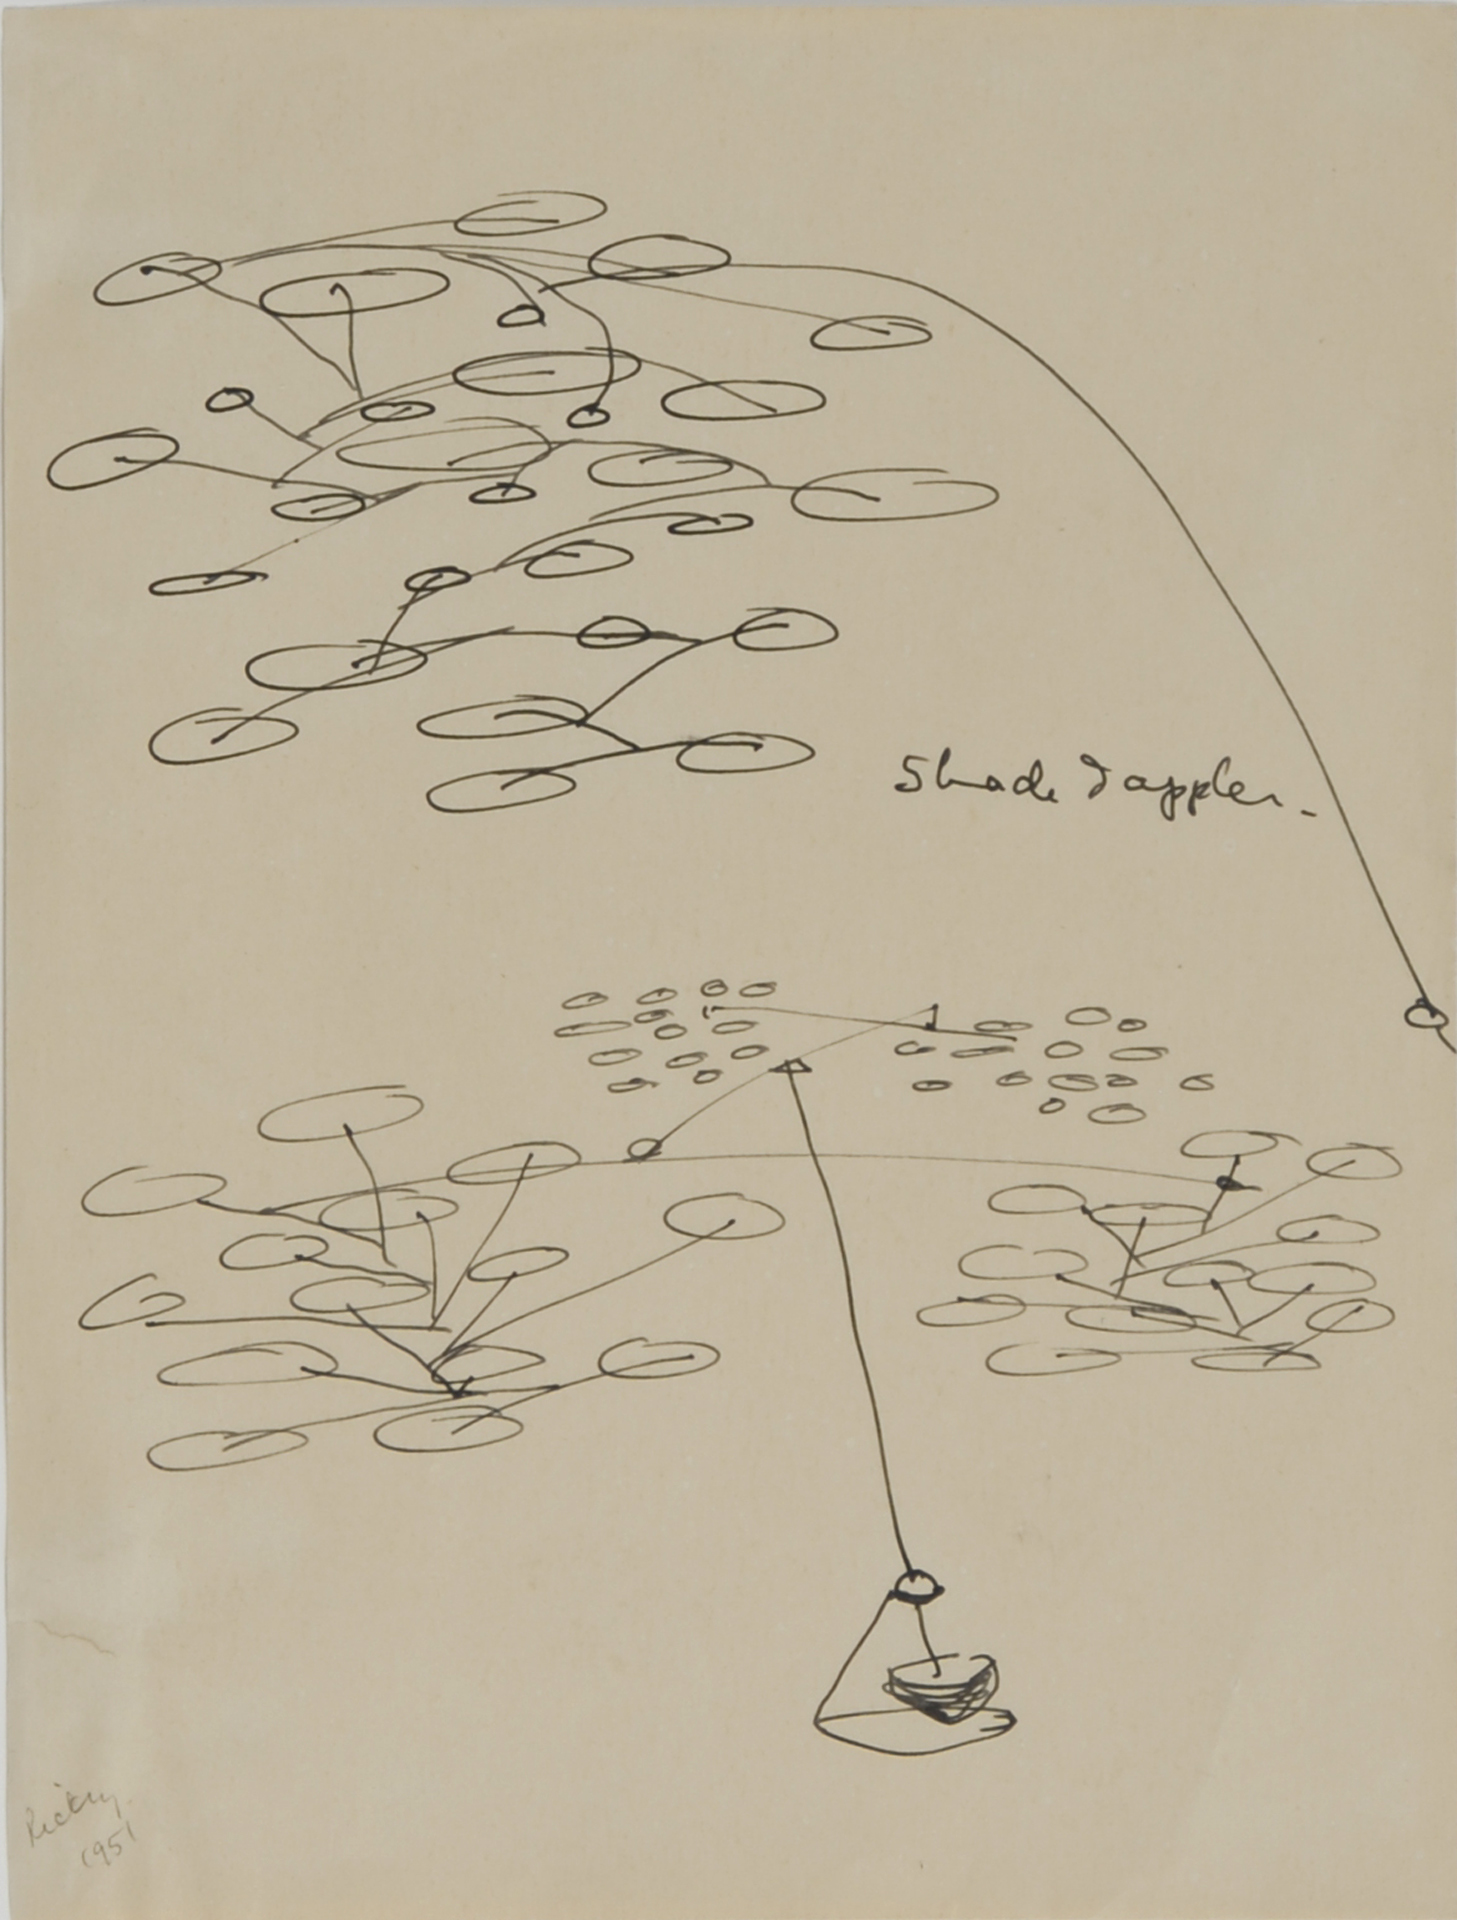 Shade Dappler.
Rickey
1951